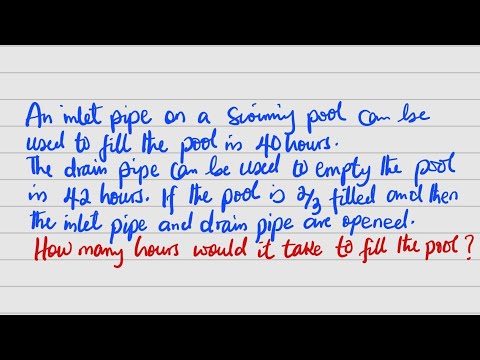 An inlet pipe on a swimming pool can be
used to fill the pool in 40 hours.
The drain pipe can be used to empty the pool
in 42 hours. If the pool is 2/3 filled and then
the inlet pipe and drain pipe are opened.
How many hours would it take to fill the pool?